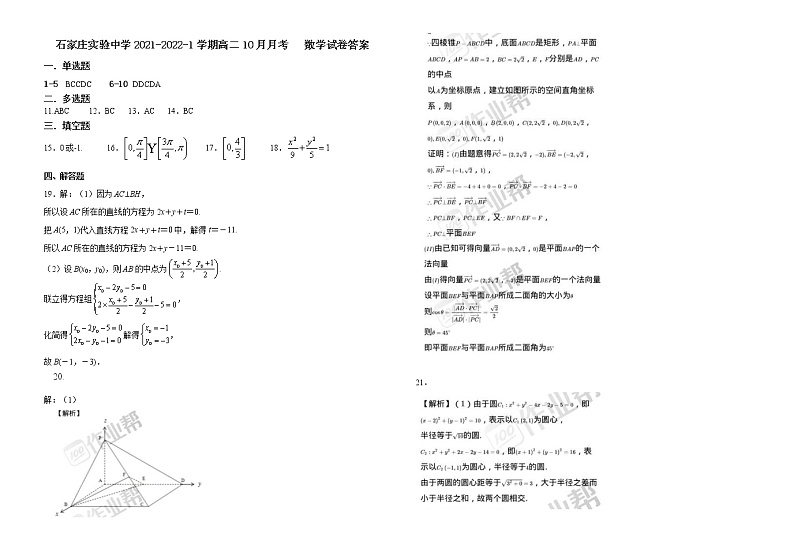 石家庄实验中学2021-2022-1学期高二10月月考 数学试卷答案
一．单选题
1-5 BCCDC 6-10 DDCDA
二．多选题
11.ABC 12．BC 13．AC 14．BC
三．填空题
15．0或-1. 16．[0,π/4]Y[3π/4,π) 17．[0,4/3] 18．x²/9+y²/5=1
四、解答题
19．解：（1）因为AC⊥BH，
所以设AC所在的直线的方程为2x+y+t=0.
把A(5，1)代入直线方程2x+y+t=0中，解得t=-11.
所以AC所在的直线的方程为2x+y-11=0.
（2）设B(x₀，y₀)，则AB的中点为(x₀+5/2, y₀+1/2).
联立得方程组{x₀-2y₀-5=0
2×x₀+5/2-y₀+1/2-5=0，
化简得{x₀-2y₀-5=0
2x₀-y₀-1=0
解得{x₀=-1
y₀=-3，
故B(-1，-3).
20.
解：（1）
【解析】
z
P
F
A
E
D
y
B
C
x
∵四棱锥P-ABCD中，底面ABCD是矩形，PA⊥平面
ABCD，AP=AB=2，BC=2√2，E，F分别是AD，PC
的中点
以A为坐标原点，建立如图所示的空间直角坐标
系，则
P(0,0,2)，A(0,0,0)，B(2,0,0)，C(2,2√2，0),D(0,2√2，
0),E(0,√2，0),F(1,√2，1)
证明：(I)由题意得PC=(2,2√2，-2),BE=(-2,√2，
0),BF=(-1,√2，1)，
∵PC·BE=-4+4+0=0，PC·BF=-2+4-2=0
∴PC⊥BE，PC⊥BF
∴PC⊥BF，PC⊥BE，又∵BF∩EF=F，
∴PC⊥平面BEF
(II)由已知可得向量AD=(0,2√2，0)是平面BAP的一个
法向量
由(I)得向量PC=(2,2√2，-2)是平面BEF的一个法向量
设平面BEF与平面BAP所成二面角的大小为θ
则cosθ=|AD·PC|/|AD|·|PC|=√2/2
则θ=45°
即平面BEF与平面BAP所成二面角为45°
21.
【解析】（1）由于圆C₁：x²+y²-4x-2y-5=0，即
(x-2)²+(y-1)²=10，表示以C₁(2,1)为圆心，
半径等于√10的圆.
C₂：x²+y²+2x-2y-14=0，即(x+1)²+(y-1)²=16，表
示以C₂(-1,1)为圆心，半径等于4的圆.
由于两圆的圆心距等于√3²+0=3，大于半径之差而
小于半径之和，故两个圆相交.
作业帮
作业帮
作业帮
作业帮